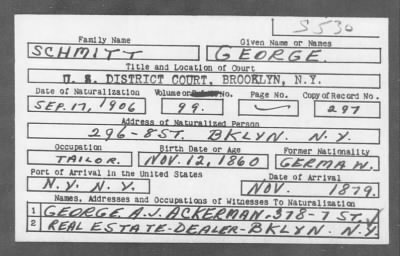 S530
Family Name Given Name or Names
SCHMITT GEORGE.
Title and Location of Court
U. S. DISTRICT COURT, BROOKLYN, N.Y.
Date of Naturalization Volume or No. Page No. Copy of Record No.
SEP. 17, 1906 99. 297
Address of Naturalized Person
296-8 ST. BKLYN. N.Y.
Occupation Birth Date or Age Former Nationality
TAILOR. NOV. 12, 1860 GERMAN.
Port of Arrival in the United States Date of Arrival
N.Y. N.Y. NOV. 1879.
Names, Addresses and Occupations of Witnesses To Naturalization
1 GEORGE A.J. ACKERMAN, 378-7 ST.
2 REAL ESTATE-DEALER-BKLYN. N.Y.